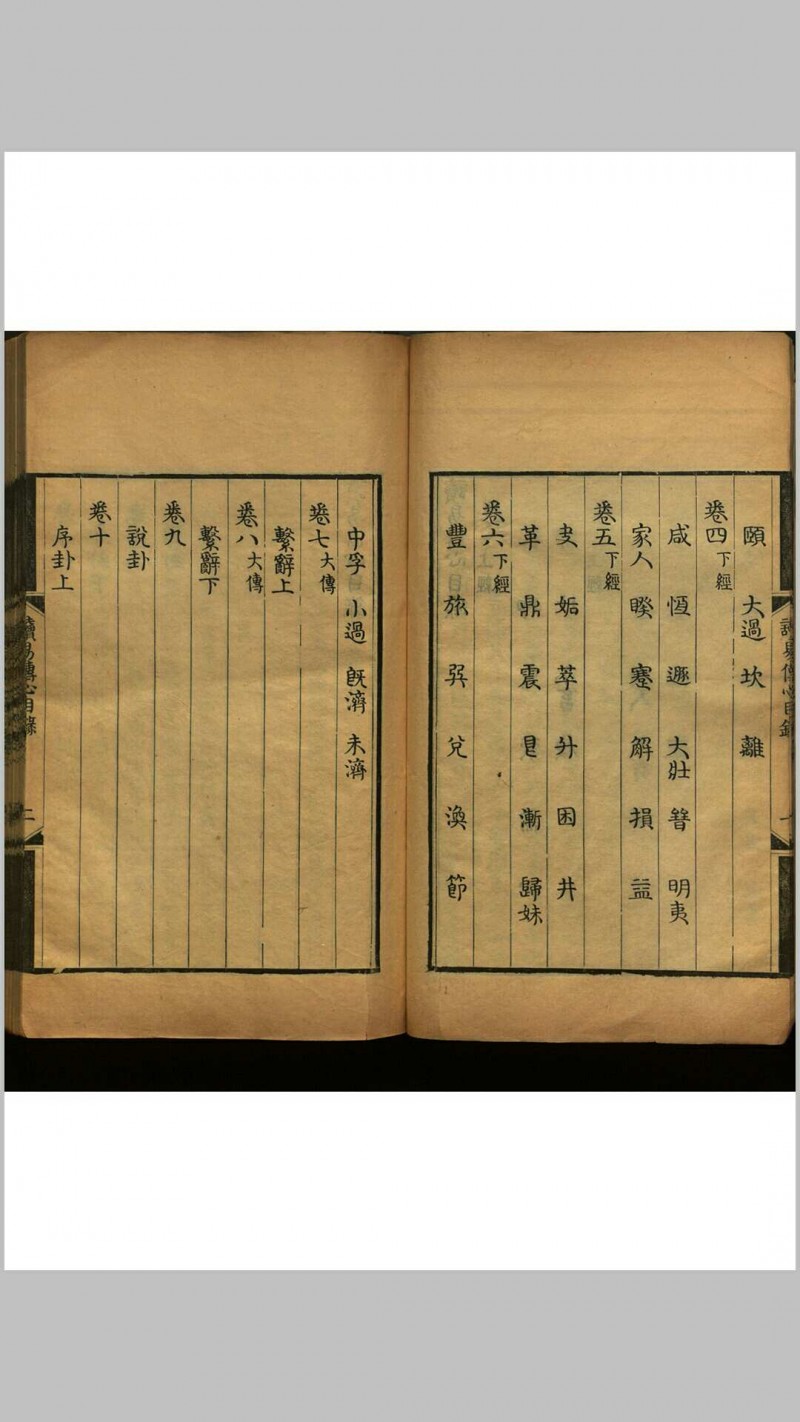 頤 大過 坎 離
卷四 下經
咸 恆 遯 大壯 晉 明夷
家人 睽 蹇 解 損 益
卷五 下經
夬 姤 萃 升 困 井
革 鼎 震 艮 漸 歸妹
卷六 下經
豐 旅 巽 兌 渙 節
中孚 小過 旣濟 未濟
卷七 大傳
繫辭上
卷八 大傳
繫辭下
卷九
說卦
卷十
序卦上
讀易傳心目錄